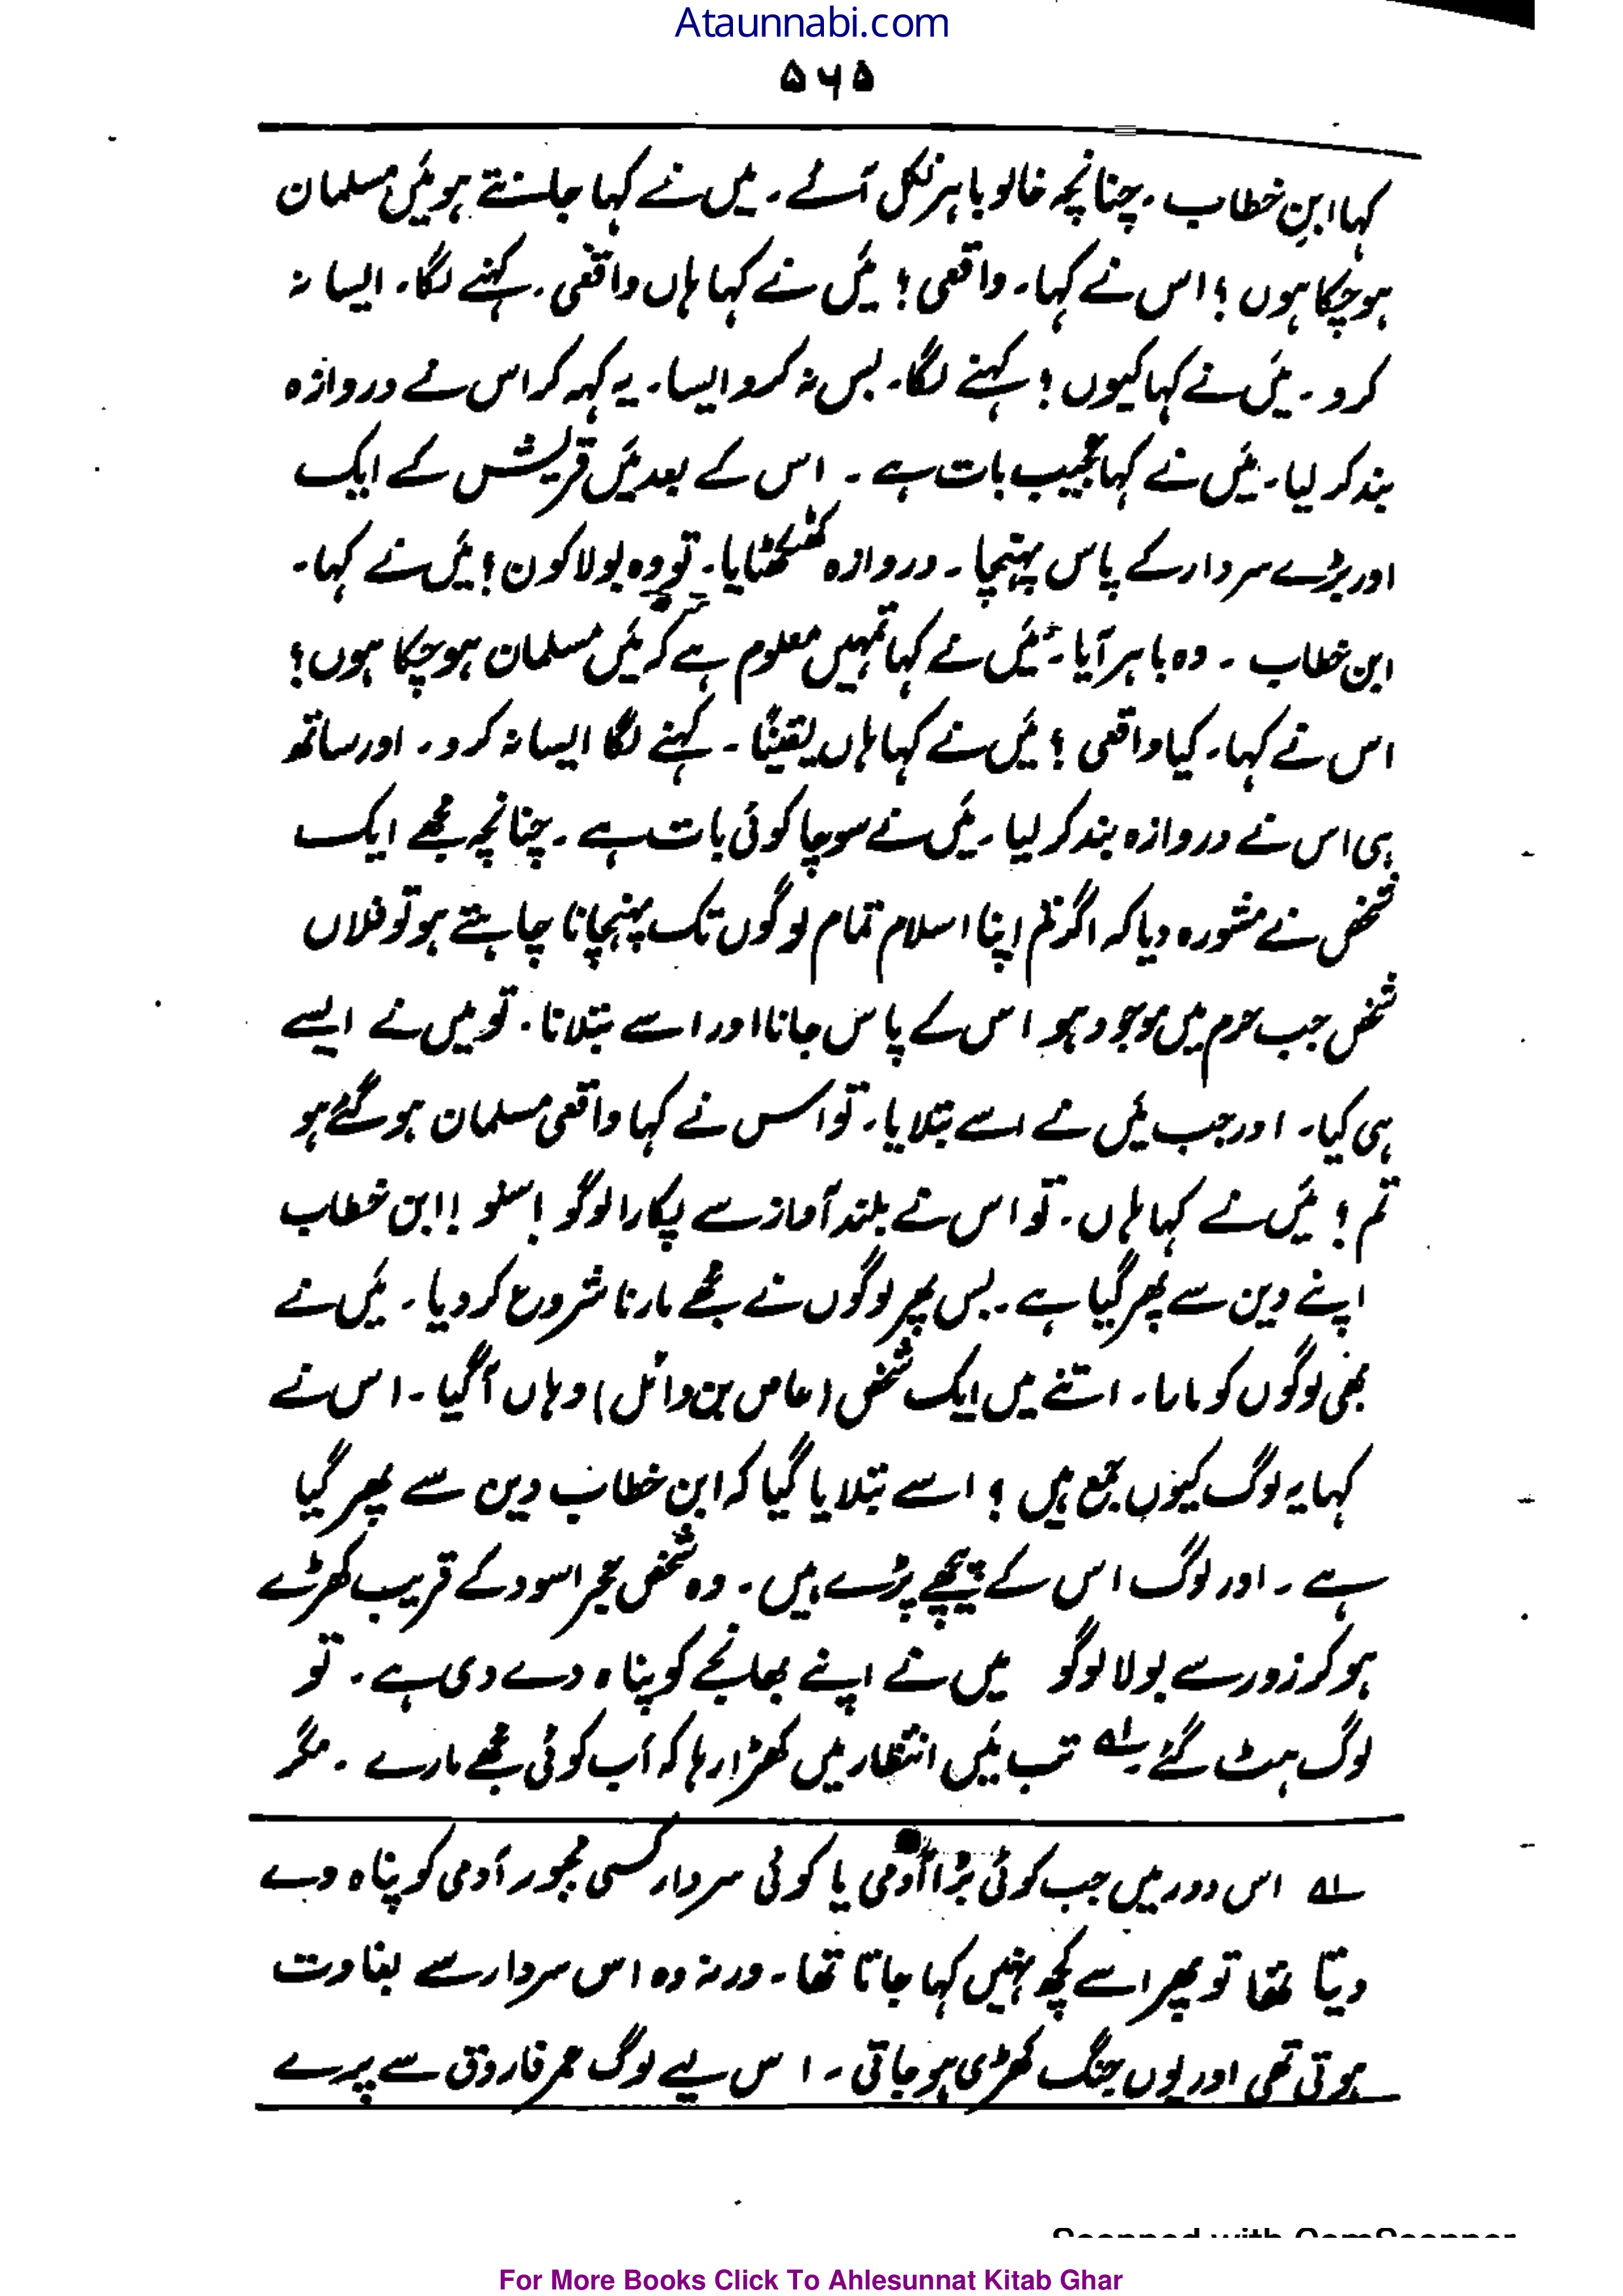 Ataunnabi.com
۵۶۵
کہا ابنِ خطاب ۔ چنانچہ خالو باہر نکل آئے ۔ میں نے کہا جانتے ہو مَیں مسلمان
ہو چکا ہوں ؟ اس نے کہا ۔ واقعی ؟ مَیں نے کہا ہاں واقعی ۔ کہنے لگا ۔ ایسا نہ
کرو ۔ مَیں نے کہا کیوں ؟ کہنے لگا ۔ بس نہ کرو ایسا ۔ یہ کہہ کر اس نے دروازہ
بند کر لیا ۔ مَیں نے کہا عجیب بات ہے ۔ اس کے بعد مَیں قریش کے ایک
اور بڑے سردار کے پاس پہنچا ۔ دروازہ کھٹکھٹایا ۔ تو وہ بولا کون ؟ مَیں نے کہا ۔
ابن خطاب ۔ وہ باہر آیا ۔ مَیں نے کہا تمہیں معلوم ہے کہ مَیں مسلمان ہو چکا ہوں ؟
اس نے کہا ۔ کیا واقعی ؟ مَیں نے کہا ہاں یقیناً ۔ کہنے لگا ایسا نہ کرو ۔ اور ساتھ
ہی اس نے دروازہ بند کر لیا ۔ مَیں نے سوچا کوئی بات ہے ۔ چنانچہ مجھے ایک
شخص نے مشورہ دیا کہ اگر تم اپنا اسلام تمام لوگوں تک پہنچانا چاہتے ہو تو فلاں
شخص جب حرم میں موجود ہو اس کے پاس جانا اور اسے بتلانا ۔ تو میں نے ایسے
ہی کیا ۔ اور جب مَیں نے اسے بتلایا ۔ تو اس نے کہا واقعی مسلمان ہو گئے ہو
تم ؟ مَیں نے کہا ہاں ۔ تو اس نے بلند آواز سے پکارا لوگو ! سنو !! ابن خطاب
اپنے دین سے پھر گیا ہے ۔ بس پھر لوگوں نے مجھے مارنا شروع کر دیا ۔ مَیں نے
بھی لوگوں کو مارا ۔ اتنے میں ایک شخص (عاص بن وائل) وہاں آگیا ۔ اس نے
کہا یہ لوگ کیوں جمع ہیں ؟ اسے بتلایا گیا کہ ابن خطاب دین سے پھر گیا
ہے ۔ اور لوگ اس کے پیچھے پڑے ہیں ۔ وہ شخص حجر اسود کے قریب کھڑے
ہو کر زور سے بولا لوگو میں نے اپنے بھانجے کو پناہ دے دی ہے ۔ تو
لوگ ہٹ گئے ۔ ؂۱ تب مَیں انتظار میں کھڑا رہا کہ اَب کوئی مجھے مارے ۔ مگر
؂۱ اس دور میں جب کوئی بڑا آدمی یا کوئی سردار کسی مجبور آدمی کو پناہ دے
دیتا تھا تو پھر اسے کچھ نہیں کہا جاتا تھا ۔ ورنہ وہ اس سردار سے بغاوت
ہوتی تھی اور یوں جنگ کھڑی ہو جاتی ۔ اس لیے لوگ عمر فاروق سے پرے
Scanned with CamScanner
For More Books Click To Ahlesunnat Kitab Ghar